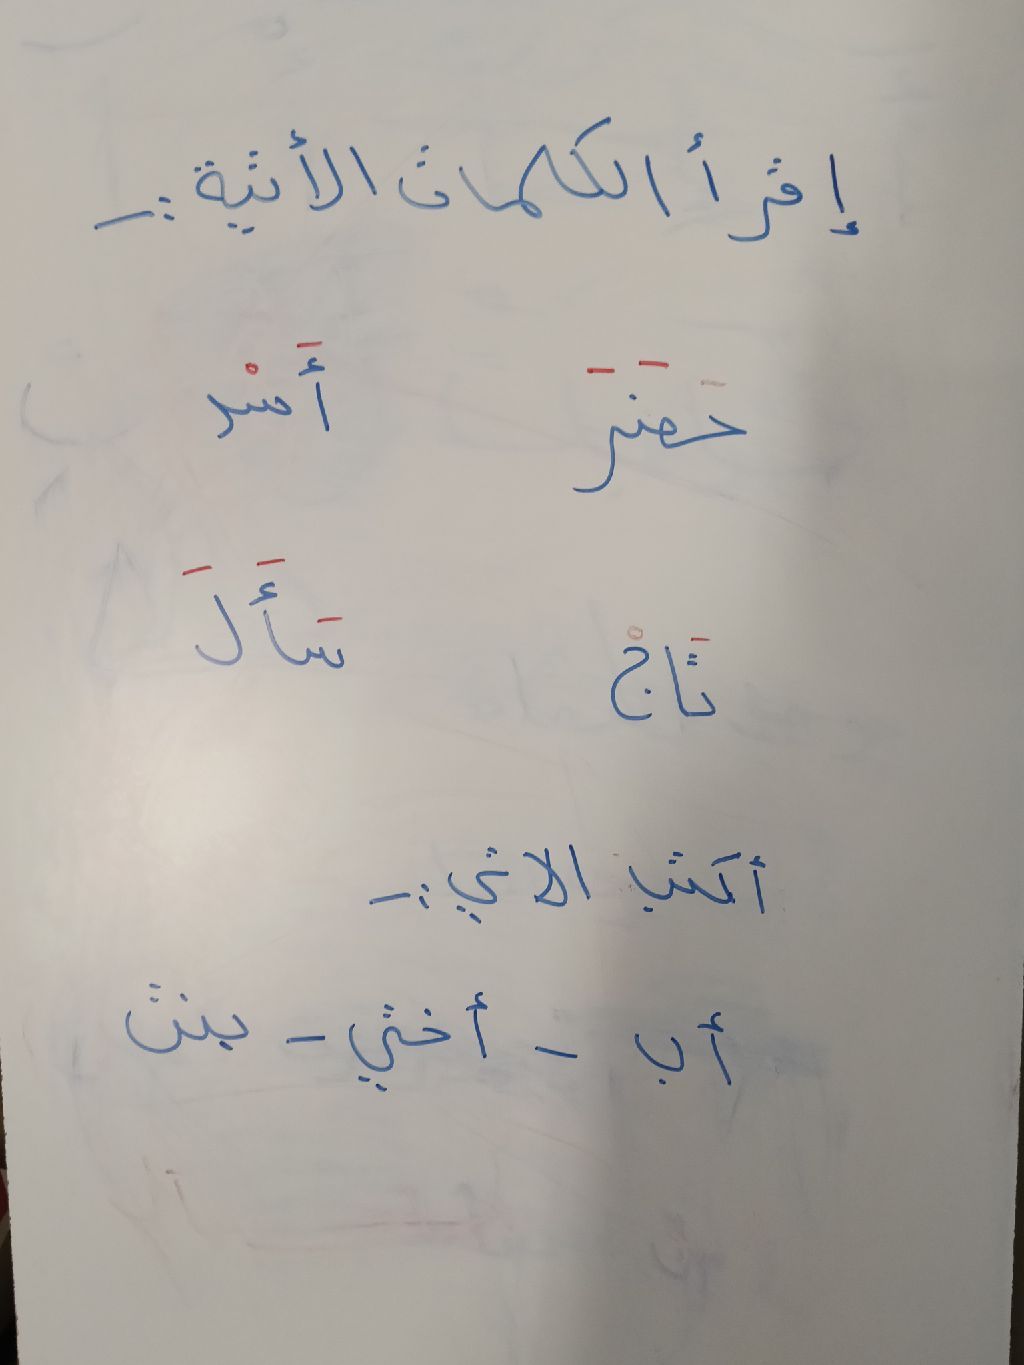 إقرأ الكلمات الأتية :-
حَضَرَ أَسْد
تَاجْ سَأَلَ
أكتب الاتي :-
أب - أختي - بنت